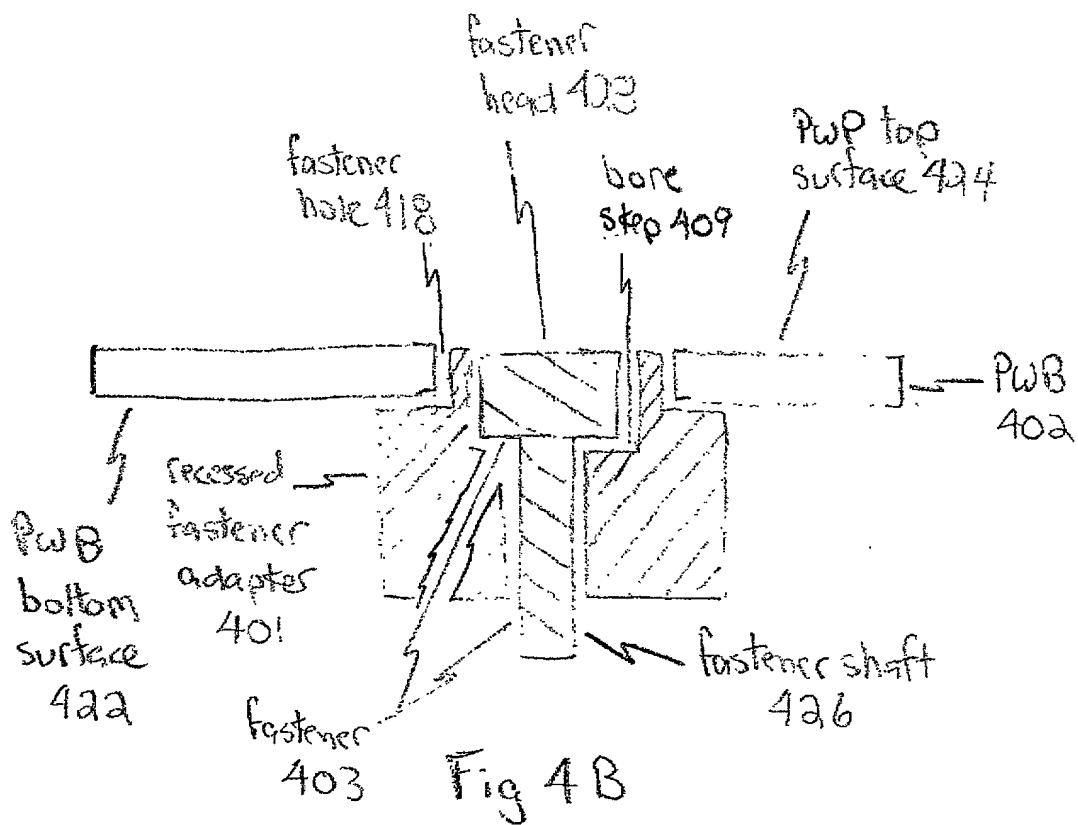 fastener
head
fastener
hole 418
bore
step 409
PWP top
surface 424
PWB
402
recessed
fastener
adapter
401
PWB
bottom
surface
422
fastener shaft
426
fastener
403
Fig 4B